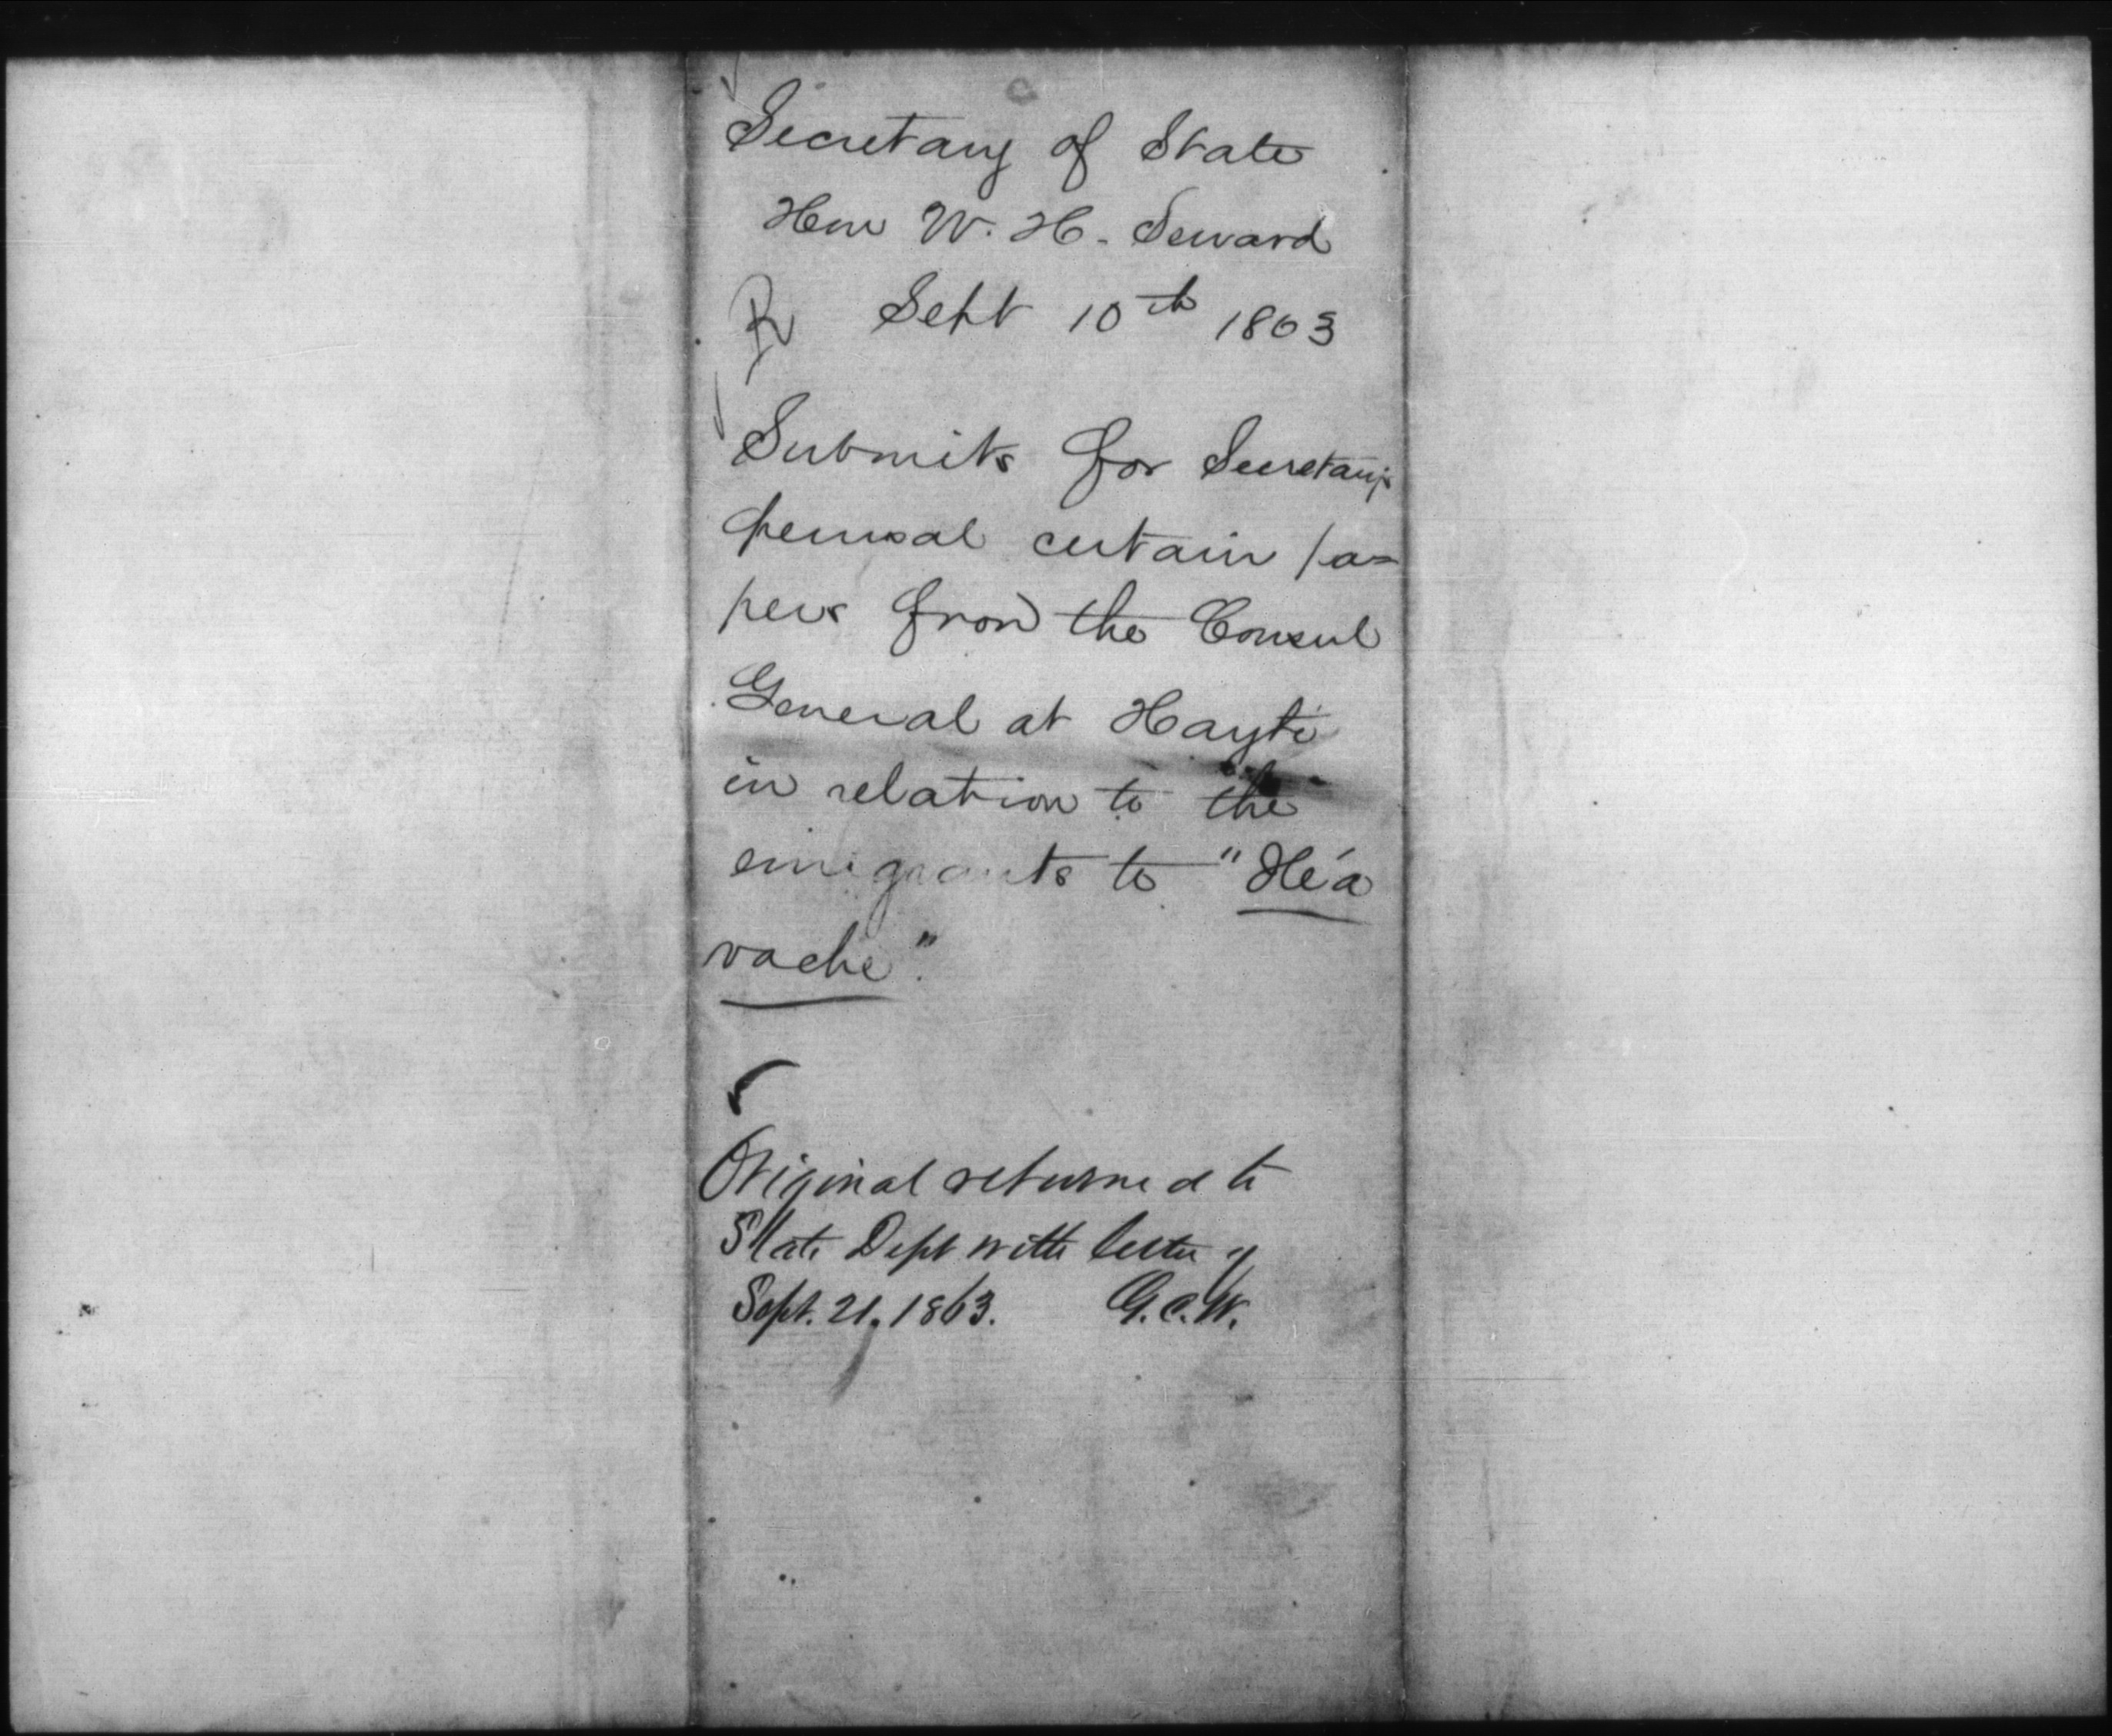 Secretary of State
Hon W. H. Seward
R Sept 10th 1863
Submits for Secretary's
perusal certain pa=
pers from the Consul
General at Hayti
in relation to the
emigrants to "Ile á
vache".
Original returned to
State Dept with letter of
Sept. 21. 1863. G.C.W.